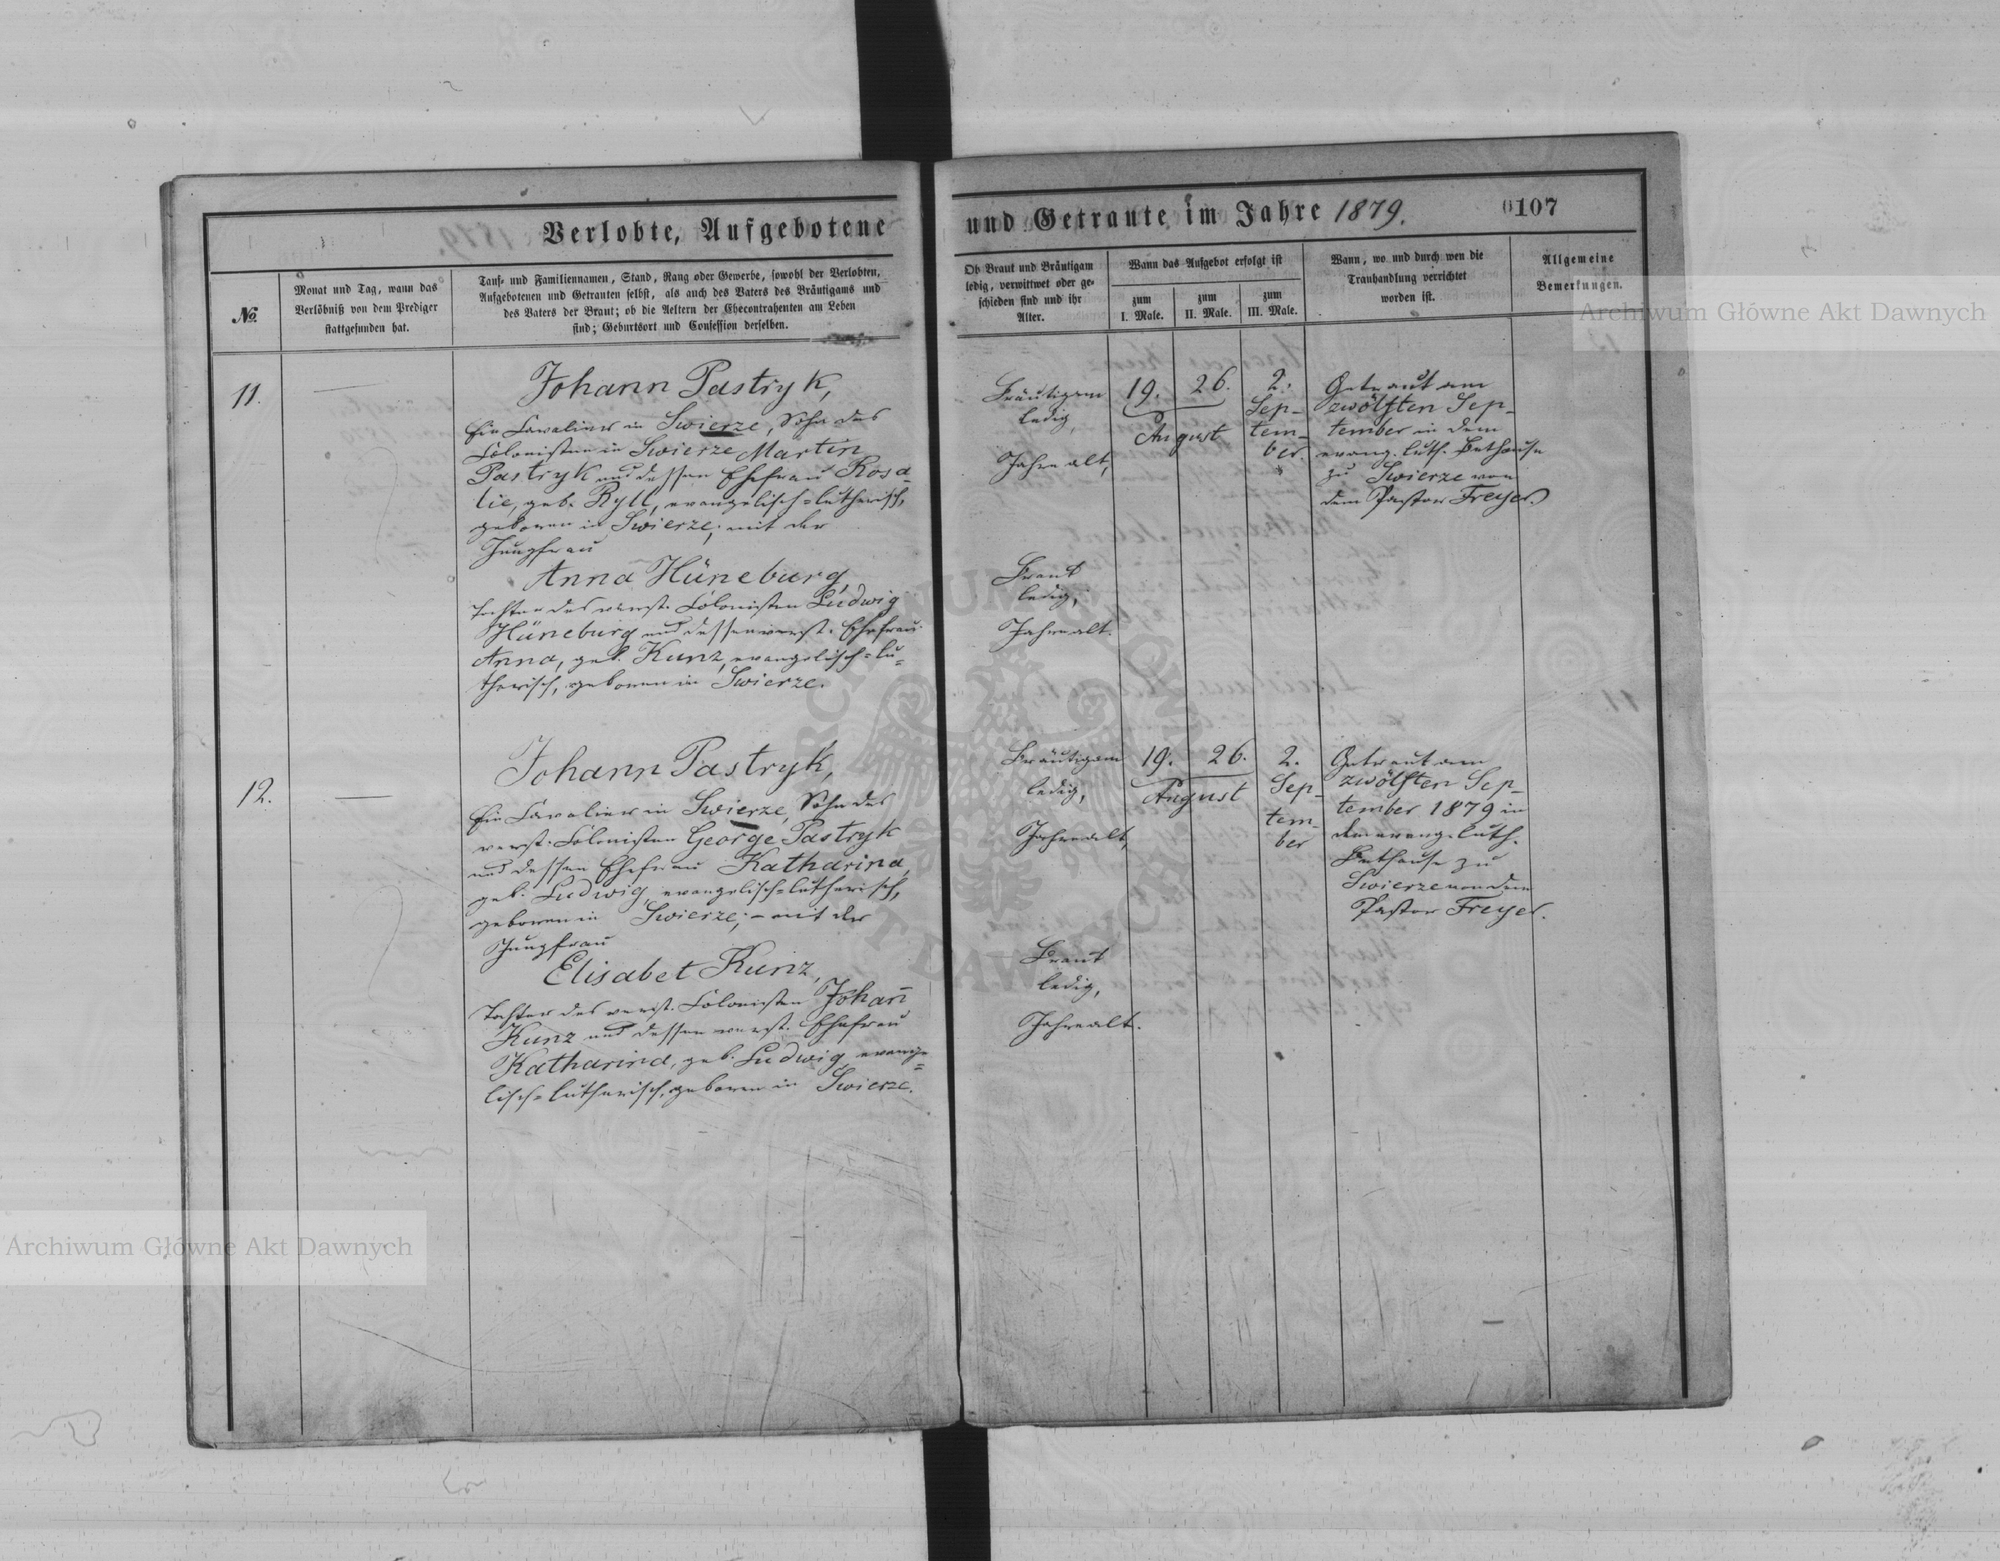 Verlobte, Aufgebotene und Getraute im Jahre 1879.
0107
No.
Monat und Tag, wann das
Verlöbniß von dem Prediger
stattgefunden hat.
Tauf- und Familiennamen, Stand, Rang oder Gewerbe, sowohl der Verlobten,
Aufgebotenen und Getrauten selbst, als auch des Vaters des Bräutigams und
des Vaters der Braut; ob die Aeltern der Ehecontrahenten am Leben
sind; Geburtsort und Confession derselben.
Ob Braut und Bräutigam
ledig, verwittwet oder ge-
schieden sind und ihr
Alter.
Wann das Aufgebot erfolgt ist
zum
I. Male.
zum
II. Male.
zum
III. Male.
Wann, wo und durch wen die
Trauhandlung verrichtet
worden ist.
Allgemeine
Bemerkungen.
11.
Johann Pastryk,
Ein in Swierze, Sohn des
Colonisten in Swierze Martin
Pastryk und dessen Ehefrau Rosa-
lie, geb. Ryll, evangelisch-lutherisch,
geboren in Swierze; mit der
Jungfrau
Anna Hüneburg,
Tochter des verst. Colonisten Ludwig
Hüneburg und dessen verst. Ehefrau
Anna, geb. Kunz, evangelisch-lu-
therisch, geboren in Swierze.
Bräutigam
ledig,
Jahre alt,
Braut
ledig,
Jahre alt.
19. 26.
August
2.
Sep-
tem-
ber.
Getraut am
zwölften Sep-
tember in dem
evang. luth. Bethause
zu Swierze von
dem Pastor Freyer.
12.
Johann Pastryk,
Ein in Swierze, Sohn des
verst. Colonisten George Pastryk
und dessen Ehefrau Katharina,
geb. Ludwig, evangelisch-lutherisch,
geboren in Swierze; – mit der
Jungfrau
Elisabet Kunz,
Tochter des verst. Colonisten Johan̄
Kunz und dessen verst. Ehefrau
Katharina, geb. Ludwig, evange-
lisch-lutherisch, geboren in Swierze.
Bräutigam
ledig,
Jahre alt,
Braut
ledig,
Jahre alt.
19. 26.
August
2.
Sep-
tem-
ber
Getraut am
zwölften Sep-
tember 1879 in
dem evang. luth.
Bethause zu
Swierze von dem
Pastor Freyer.
Archiwum Główne Akt Dawnych
Archiwum Główne Akt Dawnych